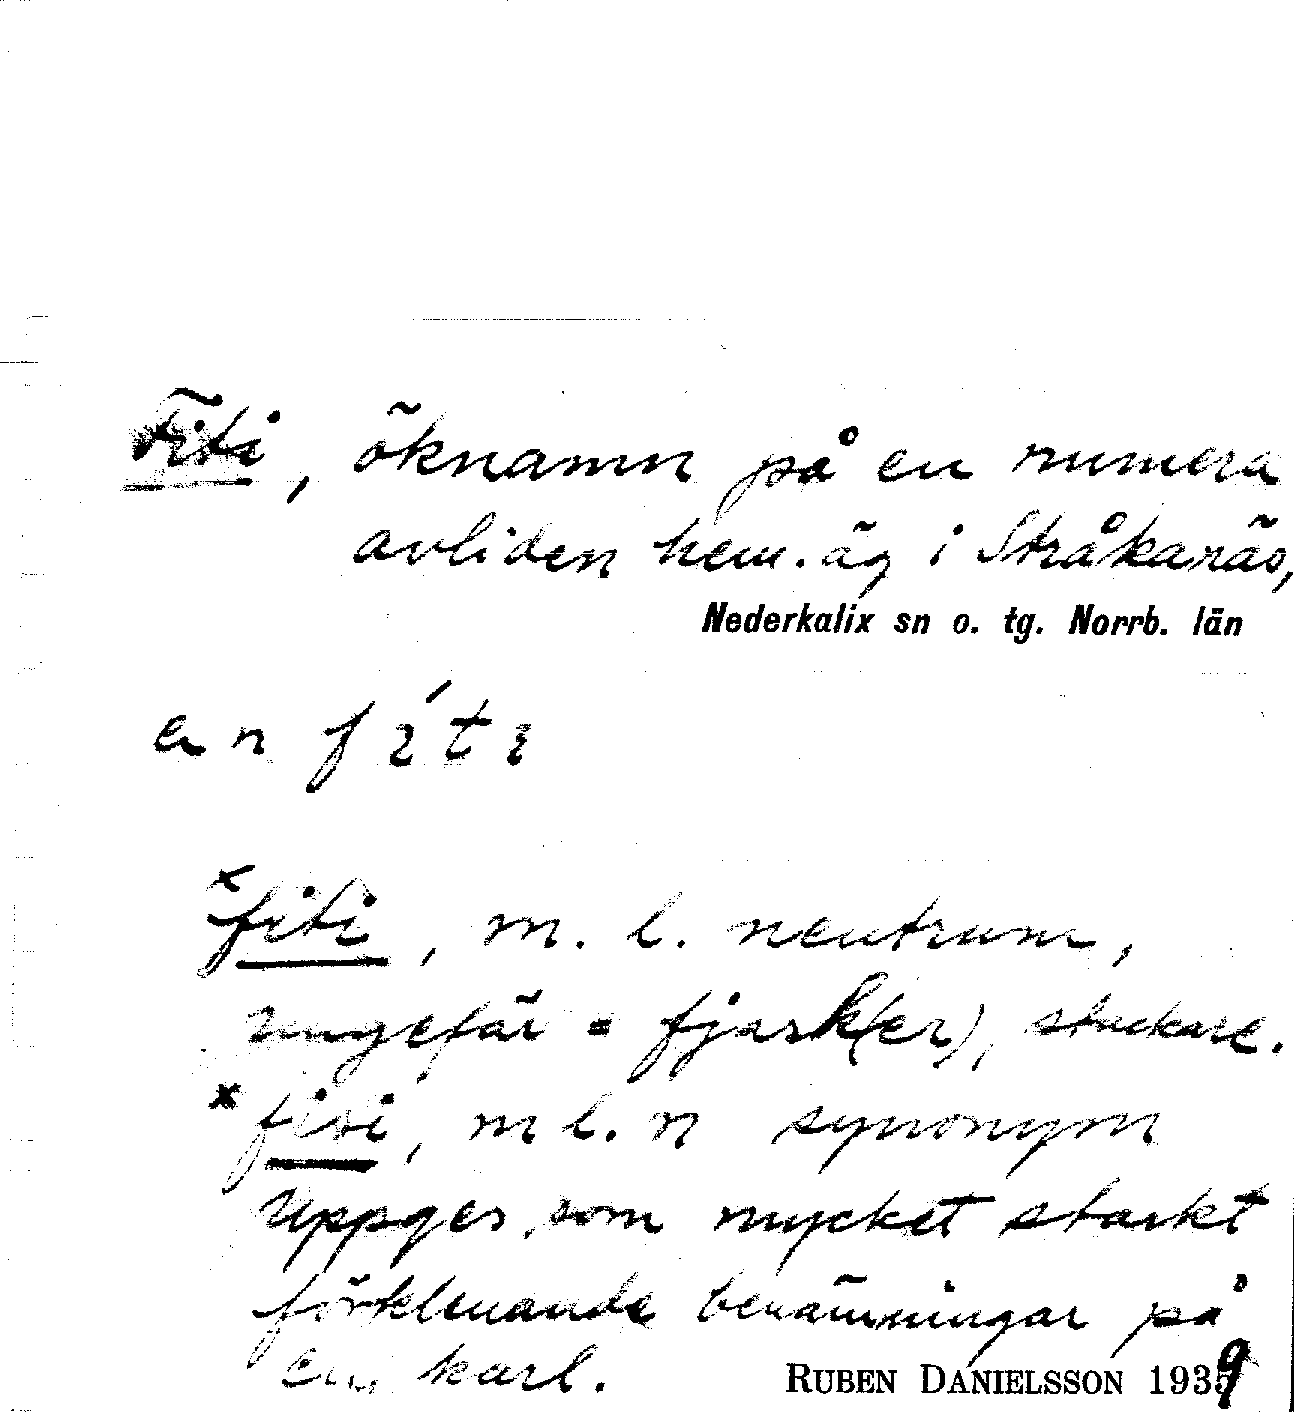 Fiti, öknamn på en numera
avliden hem.äg i Stråkanäs,
Nederkalix sn o. tg. Norrb. län
en fíti
x fiti, m. l. neutrum,
ungefär = fjärk(er), stackare.
x fisi, m l. n synonym
uppges som mycket starkt
förklenande benämningar på
en karl.
RUBEN DANIELSSON 1939